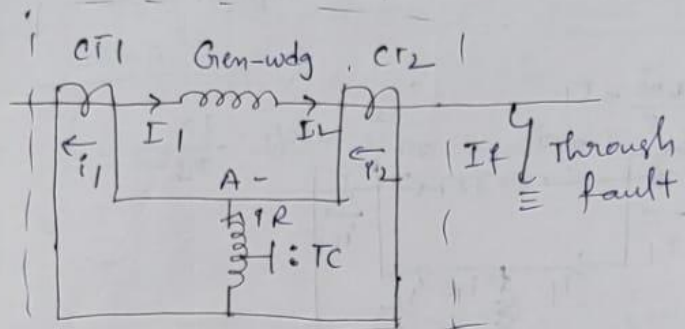 CT1 Gen-wdg. CT2
I1 I2
i1 i2 If Through
A - fault
R
: TC